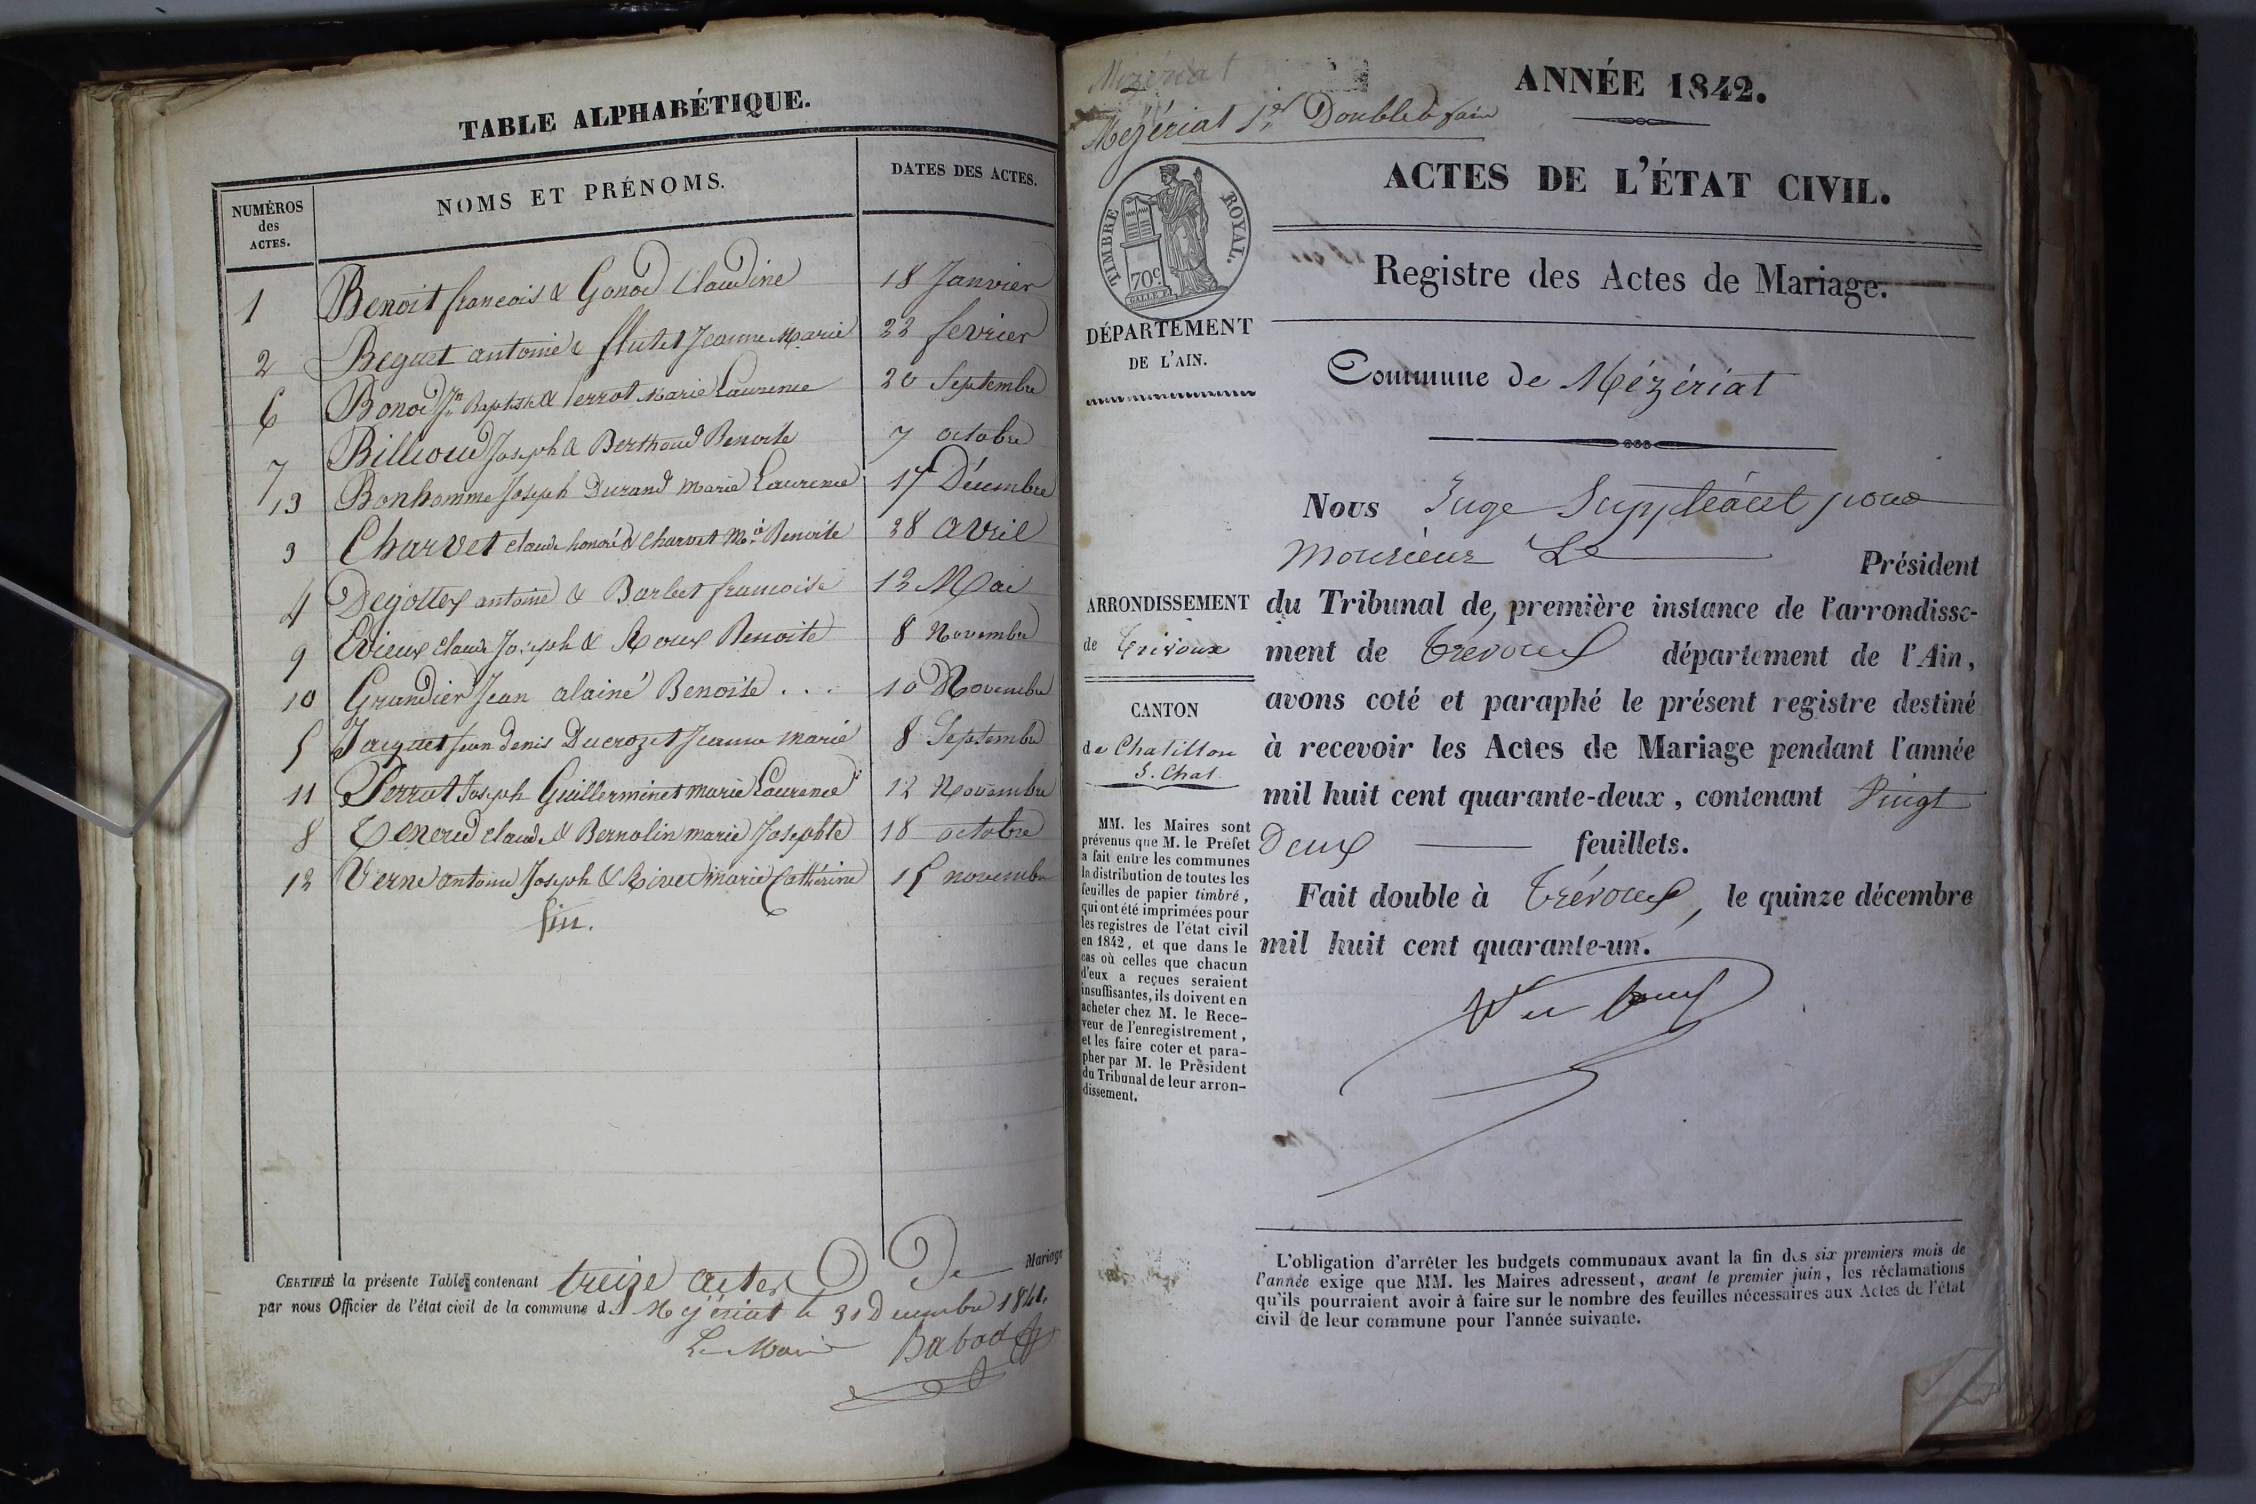 TABLE ALPHABÉTIQUE.
NUMÉROS des ACTES.
NOMS ET PRÉNOMS.
DATES DES ACTES.
1 Benoit francois & Gonod Claudine 18 Janvier
2 Beguet antoine & flutet Jeanne Marie 22 fevrier
6 Bonod Jn Baptiste & Perrot Marie Laurence 20 Septembre
7 Billioud Joseph & Berthoud Benoite 7 octobre
13 Bonhomme Joseph Durand Marie Laurence 17 Décembre
3 Charvet claude honoré & Charvet Mie Benoite 28 avril
4 Degottex antoine & Barbet francoise 12 Mai
9 Evieux claude Joseph & Roux Benoite 8 Novembre
10 Grandier Jean alainé Benoite . . . 10 Novembre
5 Jacquet Jean denis Ducrozet Jeanne marie 8 Septembre
11 Perrat Joseph Guillerminet marie Laurence 12 Novembre
8 Tenerud claude & Bernolin marie Josephte 18 octobre
12 Verne antoine Joseph & Rivet marie Catherine 15 novembre
fin.
CERTIFIÉ la présente Table contenant treize actes De Mariage
par nous Officier de l'état civil de la commune de Mézériat le 31 Decembre 1841.
Le Maire Babad
Mézériat
Mézériat 1er Double à faire
ANNÉE 1842.
ACTES DE L'ÉTAT CIVIL.
TIMBRE ROYAL.
70c
Registre des Actes de Mariage.
DÉPARTEMENT
DE L'AIN.
Commune de Mézériat
Nous Juge Suppléant pour
monsieur Le Président
ARRONDISSEMENT
de Trévoux
CANTON
de Chatillon
S. Chal.
du Tribunal de première instance de l'arrondisse-
ment de Trévoux département de l'Ain,
avons coté et paraphé le présent registre destiné
à recevoir les Actes de Mariage pendant l'année
mil huit cent quarante-deux, contenant Vingt
Deux feuillets.
Fait double à Trévoux, le quinze décembre
mil huit cent quarante-un.
MM. les Maires sont
prévenus que M. le Préfet
a fait entre les communes
la distribution de toutes les
feuilles de papier timbré,
qui ont été imprimées pour
les registres de l'état civil
en 1842, et que dans le
cas où celles que chacun
d'eux a reçues seraient
insuffisantes, ils doivent en
acheter chez M. le Rece-
veur de l'enregistrement,
et les faire coter et para-
pher par M. le Président
du Tribunal de leur arron-
dissement.
L'obligation d'arrêter les budgets communaux avant la fin des six premiers mois de
l'année exige que MM. les Maires adressent, avant le premier juin, les réclamations
qu'ils pourraient avoir à faire sur le nombre des feuilles nécessaires aux Actes de l'état
civil de leur commune pour l'année suivante.